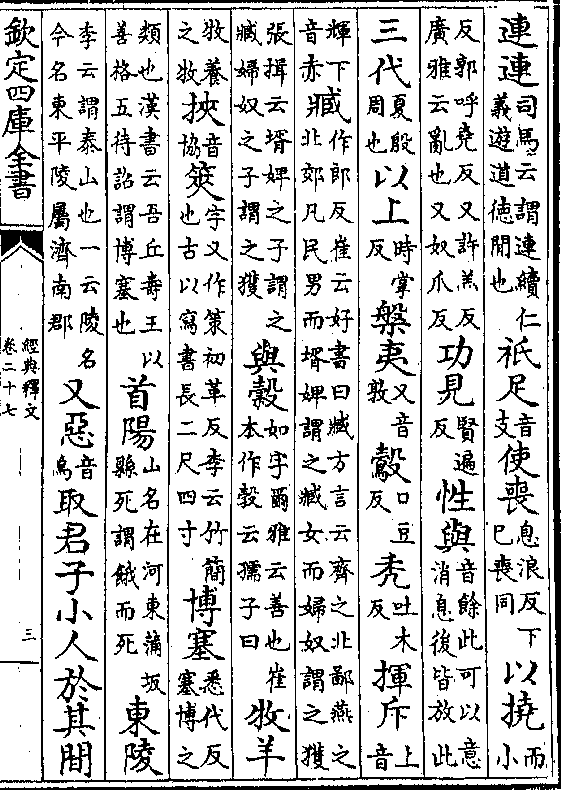 連連司馬云謂連續仁義遊道德間也祇足音支使喪息浪反下已喪同以撓而小
反郭呼堯反又許羔反廣雅云亂也又奴爪反功見賢遍反性與音餘此可以意消息後皆放此
三代夏殷周也以上時掌反槃夷又音敦鷇口豆反秃吐木反揮斥上音
輝下音赤臧作郎反崔云好書曰臧方言云齊之北鄙燕之北郊凡民男而壻婢謂之臧女而婦奴謂之獲
張揖云壻婢之子謂之臧婦奴之子謂之獲與穀如字爾雅云善也崔本作㝅云孺子曰牧羊
牧養之牧挾音協筴字又作策初革反李云竹簡也古以寫書長二尺四寸博塞悉代反塞博之
類也漢書云吾丘壽王以善格五待詔謂博塞也首陽山名在河東蒲坂縣死謂餓而死東陵
李云謂泰山也一云陵名今名東平陵屬濟南郡又惡音烏取君子小人於其間
欽定四庫全書
經典釋文
卷二十七
三